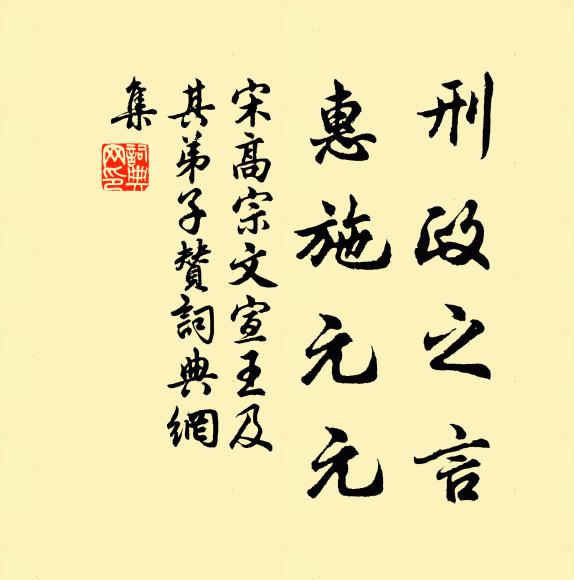 刑政之言
惠施元元
宋高宗文宣王及
其弟子赞詞典網
集
詞典
网印